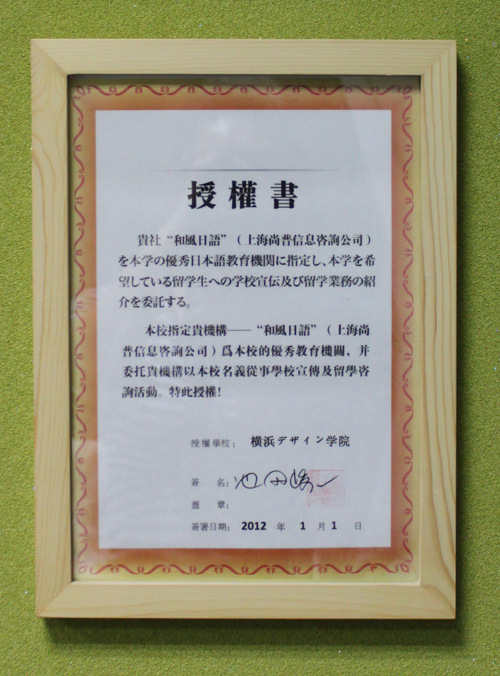 授權書
貴社“和風日語”（上海尚普信息咨詢公司）
を本学の優秀日本語教育機関に指定し、本学を希
望している留学生への学校宣伝及び留学業務の紹
介を委託する。
本校指定貴機構——“和風日語”（上海尚
普信息咨詢公司）爲本校的優秀教育機關，并
委托貴機構以本校名義從事學校宣傳及留學咨
詢活動。特此授權！
授權學校： 横浜デザイン学院
簽 名：
蓋 章：
簽署日期： 2012 年 1 月 1 日